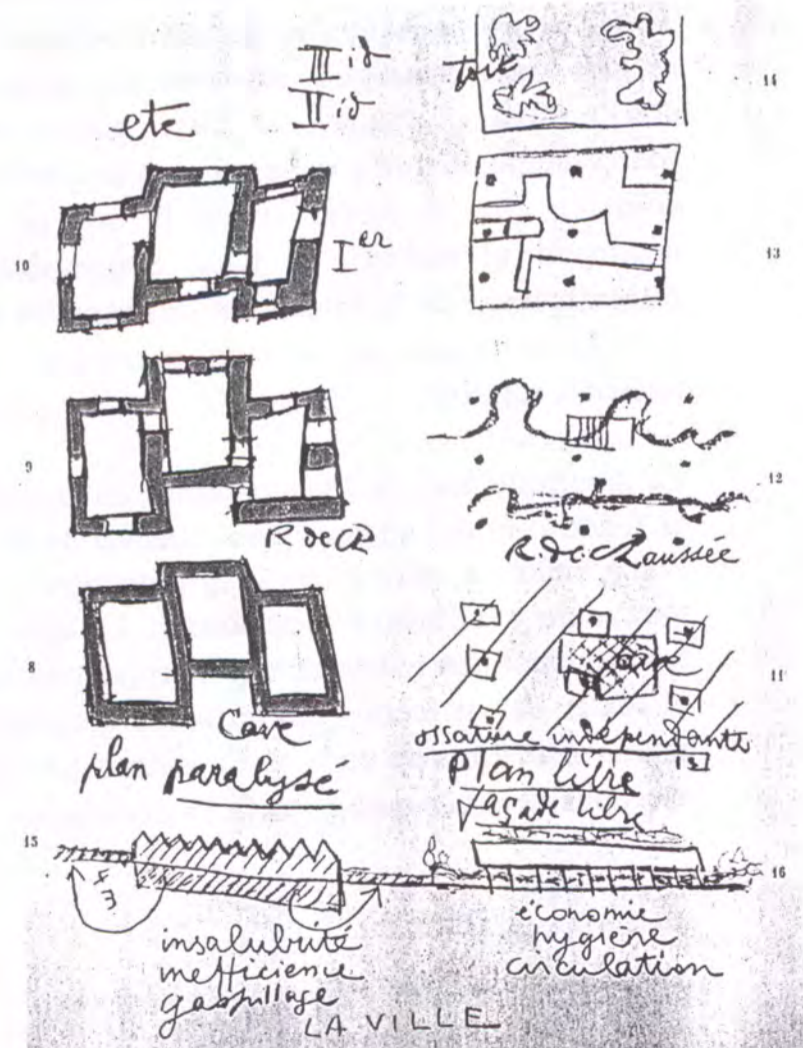 etc
III id
II id
toit
14
10
I er
13
9
R de Ch
12
R de Chaussée
8
cave
plan paralysé
11
cave
ossature indépendante
plan libre
façade libre
15
insalubrité
inefficience
gaspillage
16
économie
hygiène
circulation
LA VILLE